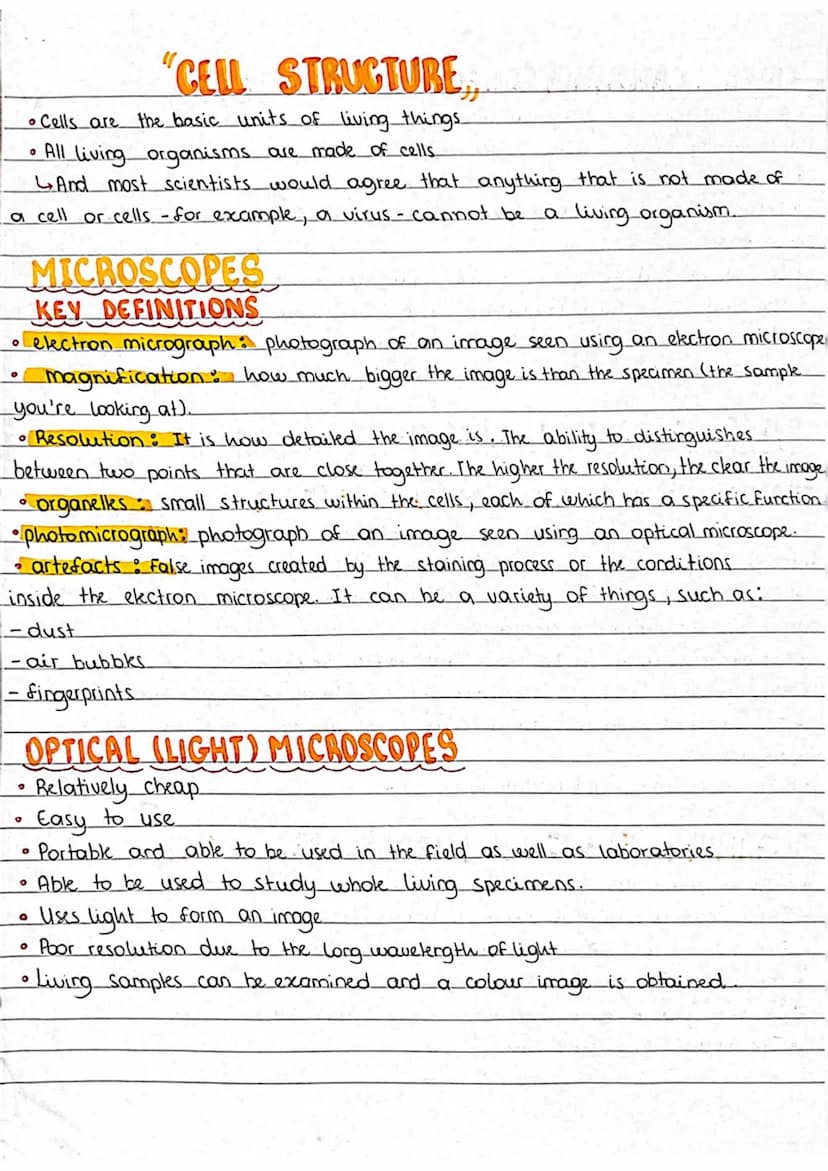 "CELL STRUCTURE"
• Cells are the basic units of living things
• All living organisms are made of cells
↳And most scientists would agree that anything that is not made of
a cell or cells - for example, a virus - cannot be a living organism.
MICROSCOPES
KEY DEFINITIONS
• electron micrograph: photograph of an image seen using an electron microscope
• magnification: how much bigger the image is than the specimen (the sample
you're looking at).
• Resolution: It is how detailed the image is. The ability to distinguishes
between two points that are close together. The higher the resolution, the clear the image
• organelles: small structures within the cells, each of which has a specific function
• photomicrograph: photograph of an image seen using an optical microscope.
• artefacts: False images created by the staining process or the conditions
inside the electron microscope. It can be a variety of things, such as:
- dust
- air bubbles
- fingerprints
OPTICAL (LIGHT) MICROSCOPES
• Relatively cheap
• Easy to use
• Portable and able to be used in the field as well as laboratories
• Able to be used to study whole living specimens.
• Uses light to form an image
• Poor resolution due to the long wavelength of light
• Living samples can be examined and a colour image is obtained.